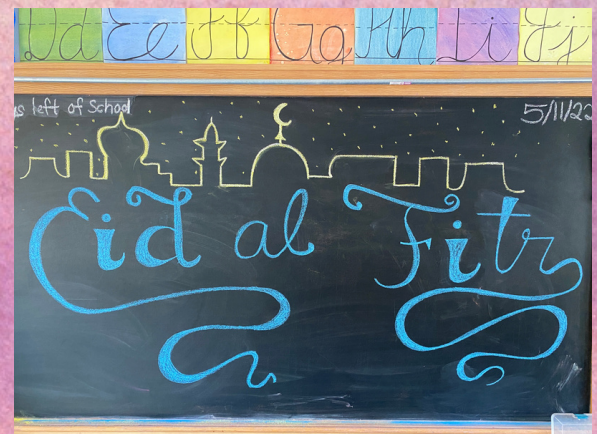 Dd Ee Ff Gg Hh Ii Jj
left of School
5/11/22
Eid al Fitr